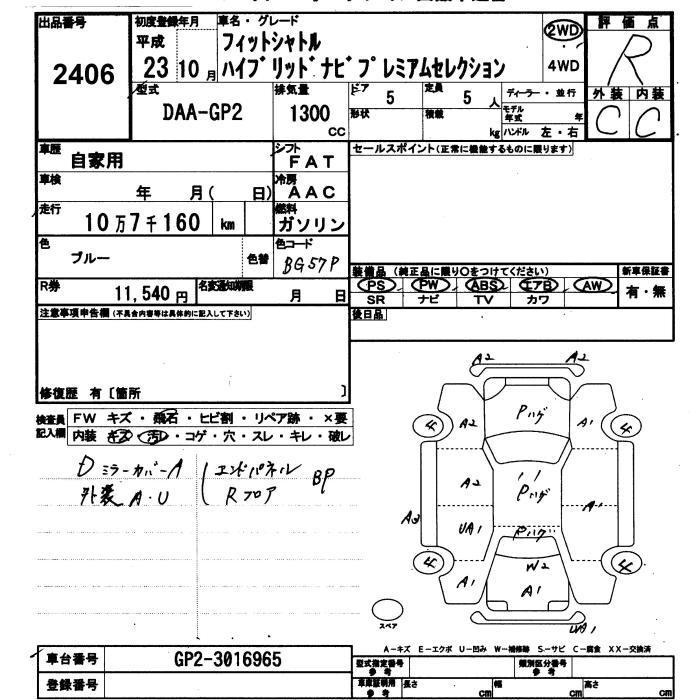 出品番号
2406
初度登録年月
平成
23 10 月
車名・グレード
フィットシャトル
ハイブリッドナビプレミアムセレクション
2WD
4WD
評価点
R
外装 内装
C C
型式
DAA-GP2
排気量
1300
CC
ドア 5
形状
定員 5 人
積載 kg
ディーラー・並行
モデル年式 年
ハンドル 左・右
車歴
自家用
シフト
FAT
車検
年 月( 日)
冷房
AAC
走行
10万7千160 km
燃料
ガソリン
色
ブルー
色替
色コード
BG57P
R券
11,540円
名変通知期限
月 日
セールスポイント(正常に機能するものに限ります)
装備品 (純正品に限り○をつけてください)
PS PW ABS エアB AW
SR ナビ TV カワ
新車保証書
有・無
後日品
注意事項申告欄(不具合内容等は具体的に記入して下さい)
修復歴 有〔箇所 〕
検査員記入欄
FW キズ・飛石・ヒビ割・リペア跡・×要
内装 キズ・汚レ・コゲ・穴・スレ・キレ・破レ
Dミラーカバー A
外装 A・U
エンドパネル
Rフロア
BP
A2 A2
Pハゲ
4 A2 A1 4
A2
Pハゲ
A3 A1
UA1
Pハゲ
4 W2 4
A1 A1 A1
UA1
スペア
A-キズ E-エクボ U-凹み W-補修跡 S-サビ C-腐食 XX-交換済
車台番号
GP2-3016965
登録番号
型式指定番号
参考
類別区分番号
参考
車庫証明用
参考
長さ cm
幅 cm
高さ cm